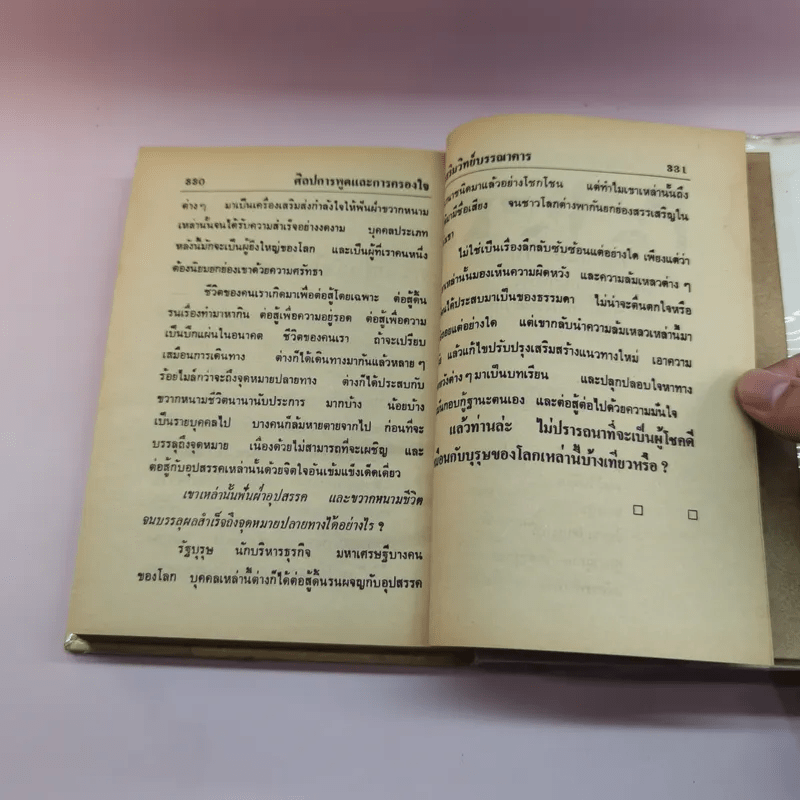 330 ศิลปการพูดและการครองใจ
ต่างๆ มาเป็นเครื่องเสริมส่งกำลังใจให้ฟันฝ่าขวากหนาม
เหล่านั้นจนได้รับความสำเร็จอย่างงดงาม บุคคลประเภท
หลังนี้มักจะเป็นผู้ยิ่งใหญ่ของโลก และเป็นผู้ที่เราคนหนึ่ง
ต้องนิยมยกย่องเขาด้วยความศรัทธา
ชีวิตของคนเราเกิดมาเพื่อต่อสู้โดยเฉพาะ ต่อสู้ดิ้น
รนเรื่องทำมาหากิน ต่อสู้เพื่อความอยู่รอด ต่อสู้เพื่อความ
เป็นปึกแผ่นในอนาคต ชีวิตของคนเรา ถ้าจะเปรียบ
เสมือนการเดินทาง ต่างก็ได้เดินทางมากันแล้วหลายๆ
ร้อยไมล์กว่าจะถึงจุดหมายปลายทาง ต่างก็ได้ประสบกับ
ขวากหนามชีวิตนานานับประการ มากบ้าง น้อยบ้าง
เป็นรายบุคคลไป บางคนก็ล้มหายตายจากไป ก่อนที่จะ
บรรลุถึงจุดหมาย เนื่องด้วยไม่สามารถที่จะเผชิญ และ
ต่อสู้กับอุปสรรคเหล่านั้นด้วยจิตใจอันเข้มแข็งเด็ดเดี่ยว
เขาเหล่านั้นฟันฝ่าอุปสรรค และขวากหนามชีวิต
จนบรรลุผลสำเร็จถึงจุดหมายปลายทางได้อย่างไร ?
รัฐบุรุษ นักบริหารธุรกิจ มหาเศรษฐีบางคน
ของโลก บุคคลเหล่านี้ต่างก็ได้ต่อสู้ดิ้นรนผจญกับอุปสรรค
ริมวิทย์บรรณาคาร 331
นาชนิดมาแล้วอย่างโชกโชน แต่ทำไมเขาเหล่านั้นถึง
มีชื่อเสียง จนชาวโลกต่างพากันยกย่องสรรเสริญใน
ขา
ไม่ใช่เป็นเรื่องลึกลับซับซ้อนแต่อย่างใด เพียงแต่ว่า
เหล่านั้นมองเห็นความผิดหวัง และความล้มเหลวต่างๆ
นได้ประสบมาเป็นของธรรมดา ไม่น่าจะตื่นตกใจหรือ
อยแต่อย่างใด แต่เขากลับนำความล้มเหลวเหล่านี้มา
แล้วแก้ไขปรับปรุงเสริมสร้างแนวทางใหม่ เอาความ
หวังต่างๆ มาเป็นบทเรียน และปลุกปลอบใจหาทาง
กอบกู้ฐานะตนเอง และต่อสู้ต่อไปด้วยความมั่นใจ
แล้วท่านล่ะ ไม่ปรารถนาที่จะเป็นผู้โชคดี
มือนกับบุรุษของโลกเหล่านี้บ้างเทียวหรือ ?